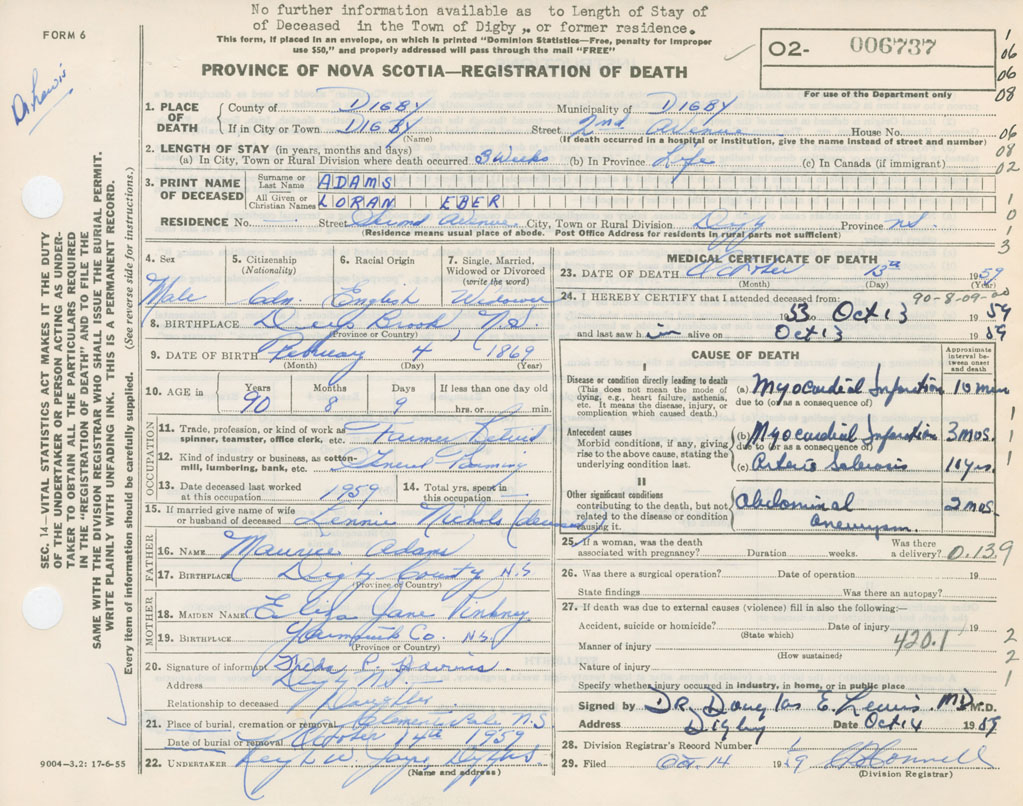 No further information available as to Length of Stay of
of Deceased in the Town of Digby, or former residence.
FORM 6
This form, if placed in an envelope, on which is printed "Dominion Statistics—Free, penalty for improper
use $50," and properly addressed will pass through the mail "FREE"
O2- 006737
For use of the Department only
PROVINCE OF NOVA SCOTIA—REGISTRATION OF DEATH
Dr Lewis
1
06
06
08
06
08
02
1
0
1
3
SEC. 14—VITAL STATISTICS ACT MAKES IT THE DUTY
OF THE UNDERTAKER OR PERSON ACTING AS UNDER-
TAKER TO OBTAIN ALL THE PARTICULARS REQUIRED
IN THE "REGISTRATION OF DEATH" AND TO FILE THE
SAME WITH THE DIVISION REGISTRAR WHO SHALL ISSUE THE BURIAL PERMIT.
WRITE PLAINLY WITH UNFADING INK. THIS IS A PERMANENT RECORD.
Every item of information should be carefully supplied. (See reverse side for instructions.)
1. PLACE OF DEATH County of DIGBY Municipality of DIGBY
If in City or Town DIGBY Street 2nd Avenue House No.
(Name) (If death occurred in a hospital or institution, give the name instead of street and number)
2. LENGTH OF STAY (in years, months and days)
(a) In City, Town or Rural Division where death occurred 3 Weeks (b) In Province Life (c) in Canada (if immigrant)
3. PRINT NAME OF DECEASED Surname or Last Name ADAMS
All Given or Christian Names LORAN EBER
RESIDENCE No. Street Second Avenue City, Town or Rural Division Digby Province NS.
(Residence means usual place of abode. Post Office Address for residents in rural parts not sufficient)
4. Sex Male
5. Citizenship (Nationality) Cdn.
6. Racial Origin English
7. Single, Married, Widowed or Divorced (write the word) Widower
8. BIRTHPLACE Deep Brook, N.S.
(Province or Country)
9. DATE OF BIRTH February 4 1869
(Month) (Day) (Year)
10. AGE in Years 90 Months 8 Days 9 If less than one day old hrs. or min.
OCCUPATION
11. Trade, profession, or kind of work as spinner, teamster, office clerk, etc. Farmer Retired
12. Kind of industry or business, as cotton-mill, lumbering, bank, etc. General Farming
13. Date deceased last worked at this occupation 1959
14. Total yrs. spent in this occupation
15. If married give name of wife or husband of deceased Lennie Nichols (deceased)
FATHER
16. NAME Maurice Adams
17. BIRTHPLACE Digby County N.S.
(Province or Country)
MOTHER
18. MAIDEN NAME Eliza Jane Pinkney
19. BIRTHPLACE Yarmouth Co. N.S.
(Province or Country)
20. Signature of informant Freda P.
Address Digby N.S.
Relationship to deceased Daughter
21. Place of burial, cremation or removal Clementsvale N.S.
Date of burial or removal October 14th 1959
22. UNDERTAKER Digby N.S.
(Name and address)
9004—3.2: 17-6-55
MEDICAL CERTIFICATE OF DEATH
23. DATE OF DEATH October 13th 1959
(Month) (Day) (Year)
24. I HEREBY CERTIFY that I attended deceased from: 90-8-09-00
53 Oct 13 1959
and last saw him alive on Oct 13 1959
CAUSE OF DEATH
Approximate interval between onset and death
I
Disease or condition directly leading to death
(This does not mean the mode of dying, e.g., heart failure, asthenia, etc. It means the disease, injury, or complication which caused death.)
(a) Myocardial Infarction 10 min
due to (or as a consequence of)
Antecedent causes
Morbid conditions, if any, giving rise to the above cause, stating the underlying condition last.
(b) Myocardial Infarction 3 mos.
due to (or as a consequence of)
(c) Arterio Sclerosis 10 yrs.
II
Other significant conditions
contributing to the death, but not related to the disease or condition causing it.
Abdominal aneurysm. 2 mos.
1
1
1
25. If a woman, was the death associated with pregnancy? Duration weeks. Was there a delivery? 0.139
26. Was there a surgical operation? Date of operation 19
State findings Was there an autopsy?
27. If death was due to external causes (violence) fill in also the following:—
Accident, suicide or homicide? Date of injury 19
(State which)
Manner of injury 420.1
(How sustained)
Nature of injury
Specify whether injury occurred in industry, in home, or in public place
2
2
1
Signed by DR. Douglas E. Lewis MD M.D.
Address Digby Date Oct 14 1959
28. Division Registrar's Record Number
29. Filed Oct. 14 1959
(Division Registrar)